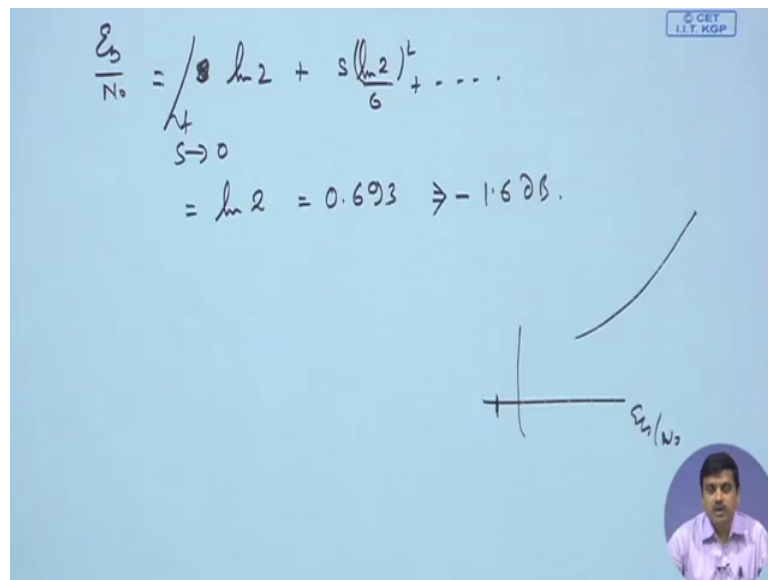 © CET
I.I.T. KGP
Eb/N0 = Lt s→0 ln 2 + s(ln 2)²/6 + ....
= ln 2 = 0.693 ⇒ - 1.6 dB.
Eb/N0